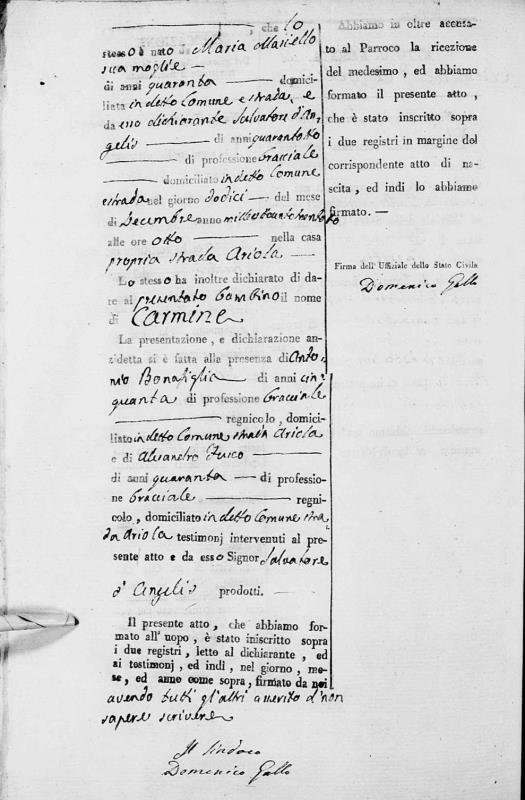 , che lo
stesso è nato da Maria Masiello
sua moglie
di anni quaranta domici-
liata in detto Comune e strada, e
da esso dichiarante Salvatore d'An
gelis di anni quarantotto
di professione bracciale
domiciliato in detto Comune
e strada nel giorno dodici del mese
di Decembre anno milleottocentotrentotto
alle ore otto nella casa
propria strada Ariola
Lo stesso ha inoltre dichiarato di da-
re al presentato bambino il nome
di Carmine
La presentazione, e dichiarazione an-
zidetta si è fatta alla presenza di Anto
nio Bonafiglia di anni cin
quanta di professione bracciale
regnicolo, domici-
liato in detto Comune strada Ariola
e di Alesandro Fusco
di anni quaranta di professio-
ne bracciale regni-
colo, domiciliato in detto Comune stra
da Ariola testimonj intervenuti al pre-
sente atto e da esso Signor Salvatore
d'Angelis prodotti.
Il presente atto, che abbiamo for-
mato all' uopo, è stato iniscritto sopra
i due registri, letto al dichiarante, ed
ai testimonj, ed indi, nel giorno, me-
se, ed anno come sopra, firmato da noi
avendo tutti gl'altri asserito di non
sapere scrivere
Il Sindaco
Domenico Gallo
Abbiamo in oltre accusa-
to al Parroco la ricezione
del medesimo, ed abbiamo
formato il presente atto,
che è stato inscritto sopra
i due registri in margine del
corrispondente atto di na-
scita, ed indi lo abbiamo
firmato. —
Firma dell' Uffiziale dello Stato Civile
Domenico Gallo